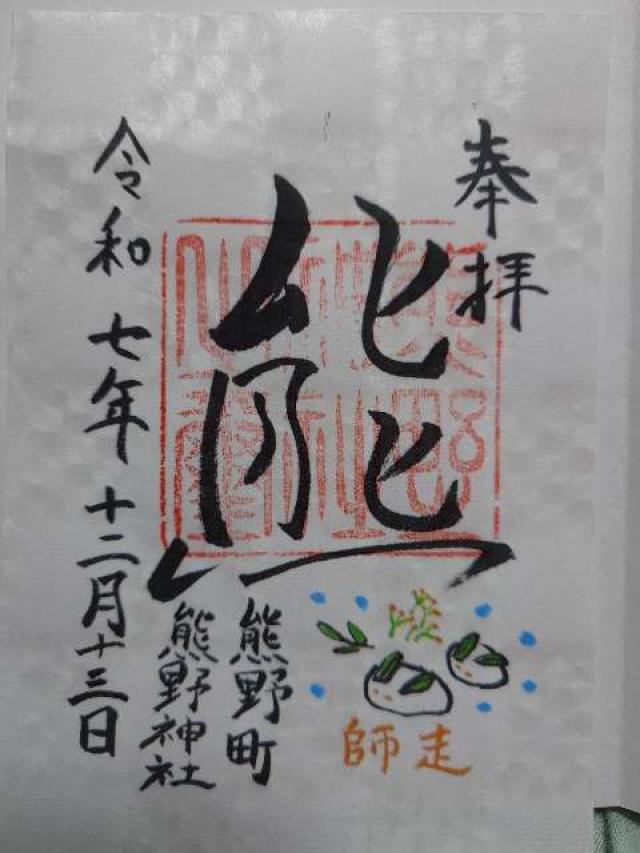 奉拝
熊
熊野町
熊野神社
令和七年十二月十三日
師走